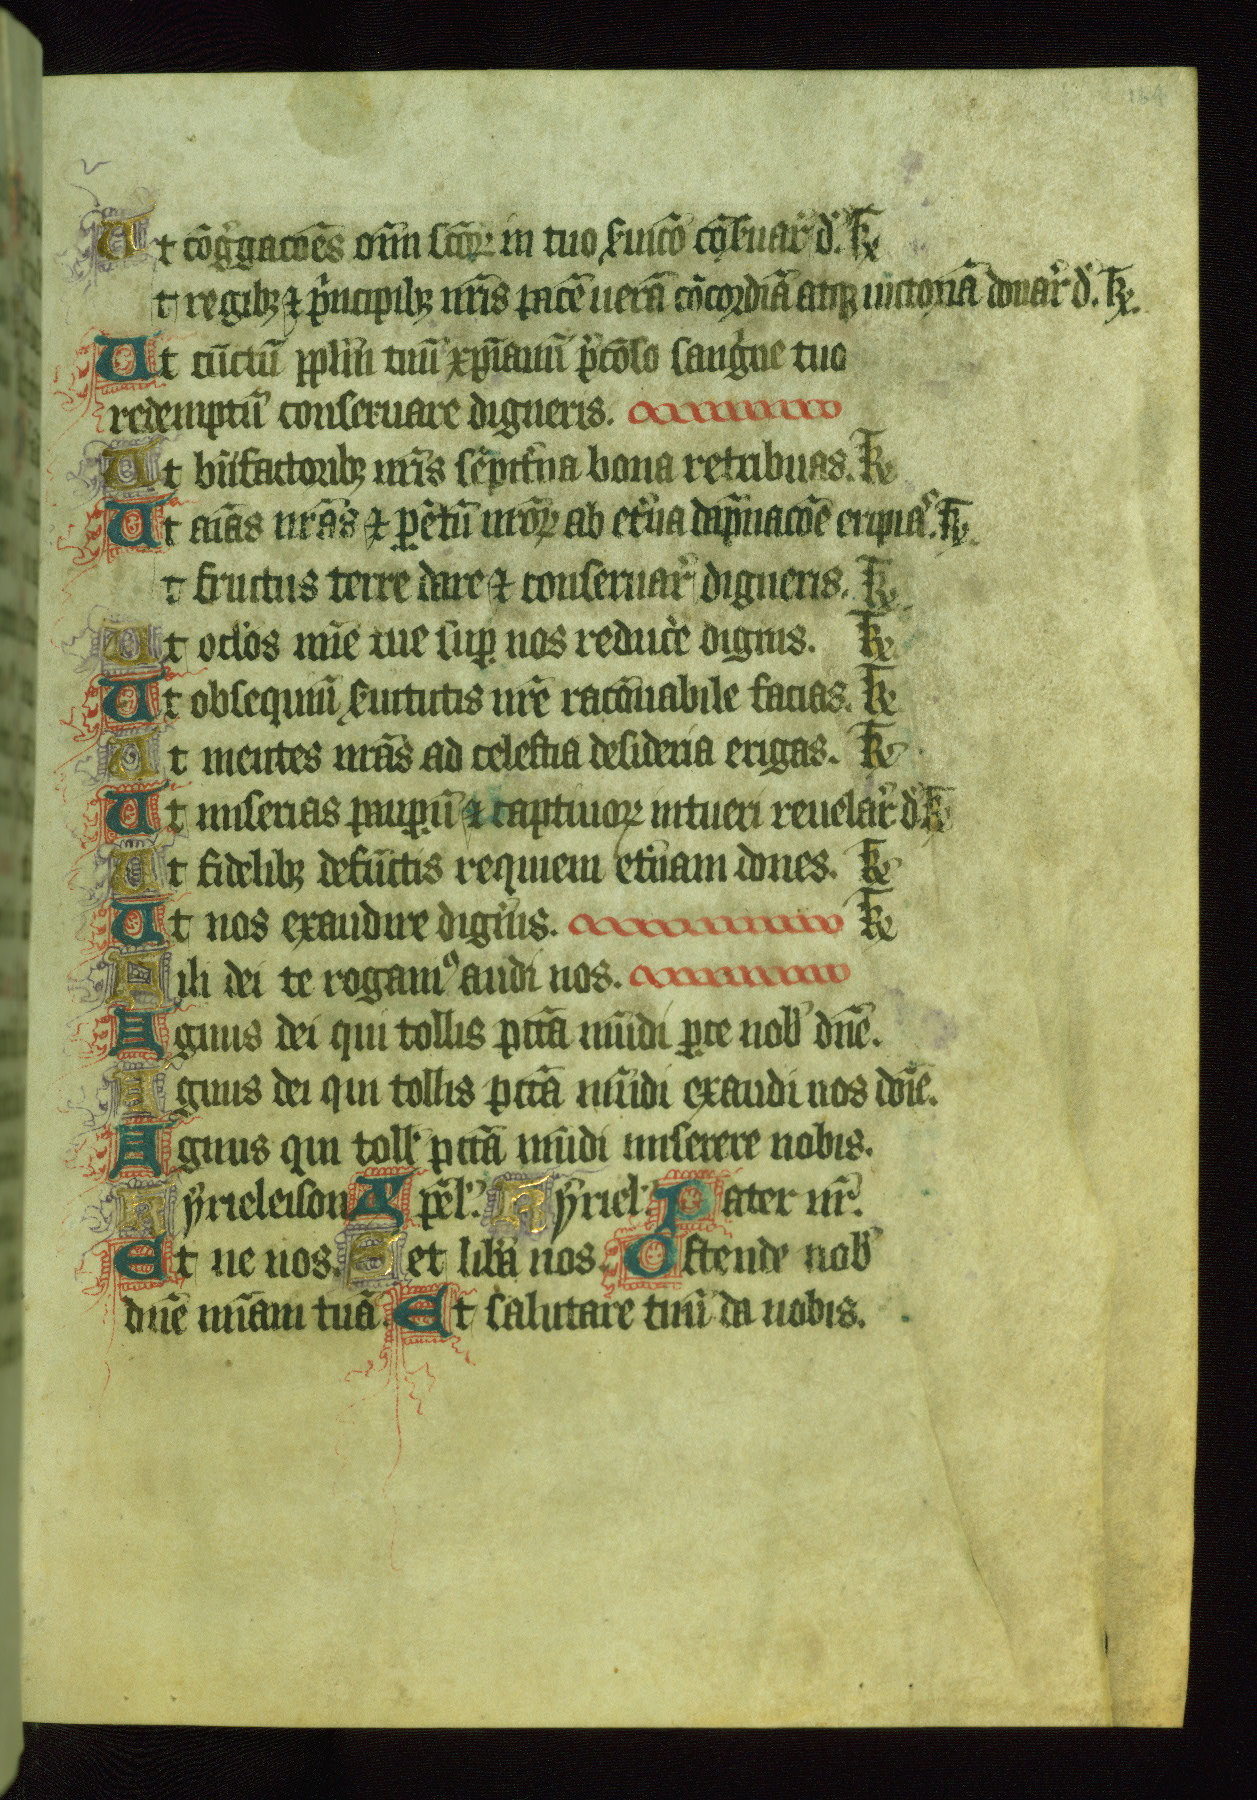 Ut cōg̾gacōēs om̄i sc̄oꝝ in tuo ẜuicō cōẜuar̾ d̾. R̄
t regibꝫ ⁊ p̾ncipibꝫ nr̄is pacē uerā cōcordiā atqꝫ uictoriā donar̾ d̾. R̄.
Ut cūctū pp̄lm̄ tuū xp̄ianū p̾cōso sangⁱne tuo
redemptū conseruare digneris.
Ut bn̄factoribꝫ nr̄is sēpit̾na bona retribuas. R̄
Ut aīas nr̄as ⁊ ꝑētū nr̄oꝝ ab et̾na dāpnacōe eripia͛. R̄
t fructus terre dare ⁊ conseruar̾ digneris. R̄
Ut oc̄los mīe tue suꝑ nos reduc̾e dignis. R̄
Ut obsequiū ẜuitutis nr̄e racōnabile facias. R̄
Ut mentes nr̄as ad celestia desideria erigas. R̄
Ut miserias pauꝑū ⁊ captiuoꝝ intueri reuelar̾ d̾ R̄
Ut fidelibꝫ defūctis requiem et̾nam dones. R̄
Ut nos exaudire dign̾is. R̄
Fili dei te rogamꝰ audi nos.
Agnus dei qui tollis pctā mūdi ꝑce nob̾ dn̄e.
Agnus dei qui tollis pctā mūdi exaudi nos dn̄e.
Agnus qui toll̾ pctā mūdi miserere nobis.
Kẏrieleison Xp̄el̾. Kẏriel̾. Pater nr̄.
Et ne nos. Set lib̾a nos. Ostende nob̾
dn̄e mīam tuā. Et salutare tuū da nobis.